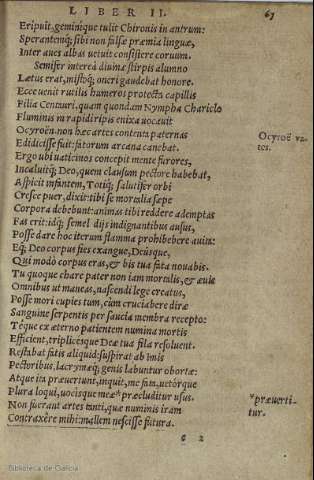 LIBER II.
67
Eripuit, geminiq́ue tulit Chironis in antrum:
Sperantemq́; sibi non falsæ præmia linguæ,
Inter aues albas vetuit consistere coruum.
Semifer interea diuinæ stirpis alumno
Lætus erat, mistoq́; oneri gaudebat honore.
Ecce uenit rutilis humeros protecta capillis
Filia Centauri, quam quondam Nympha Chariclo
Fluminis in rapidi ripis enixa uocauit
Ocyroën. non hæc artes contenta paternas
Ocyroë va-
tes.
Edidicisse fuit: fatorum arcana canebat.
Ergo ubi uaticinos concepit mente furores,
Incaluitq́; Deo, quem clausum pectore habebat,
Aspicit infantem, Totiq́; salutifer orbi
Cresce puer, dixit: tibi se mortalia sæpe
Corpora debebunt: animas tibi reddere ademptas
Fas erit: idq́; semel dijs indignantibus ausus,
Posse dare hoc iterum flamma prohibebere auita:
Eq́; Deo corpus fies exangue, Deusque,
Qui modo corpus eras, & bis tua fata nouabis.
Tu quoque chare pater non iam mortalis, & æuis
Omnibus ut maneas, nascendi lege creatus,
Posse mori cupies tum, cùm cruciabere diræ
Sanguine serpentis per saucia membra recepto:
Téque ex æterno patientem numina mortis
Efficient, triplicesque Deæ tua fila resoluent.
Restabat fatis aliquid: suspirat ab imis
Pectoribus, lacrymæq́; genis labuntur obortæ:
Atque ita præuertunt, inquit, me fata, uetórque
Plura loqui, uocisque meæ * præcluditur usus.
* præuerti-
tur.
Non fuerant artes tanti, quæ numinis iram
Contraxêre mihi: mallem nescisse futura.
e 2
Biblioteca de Galicia